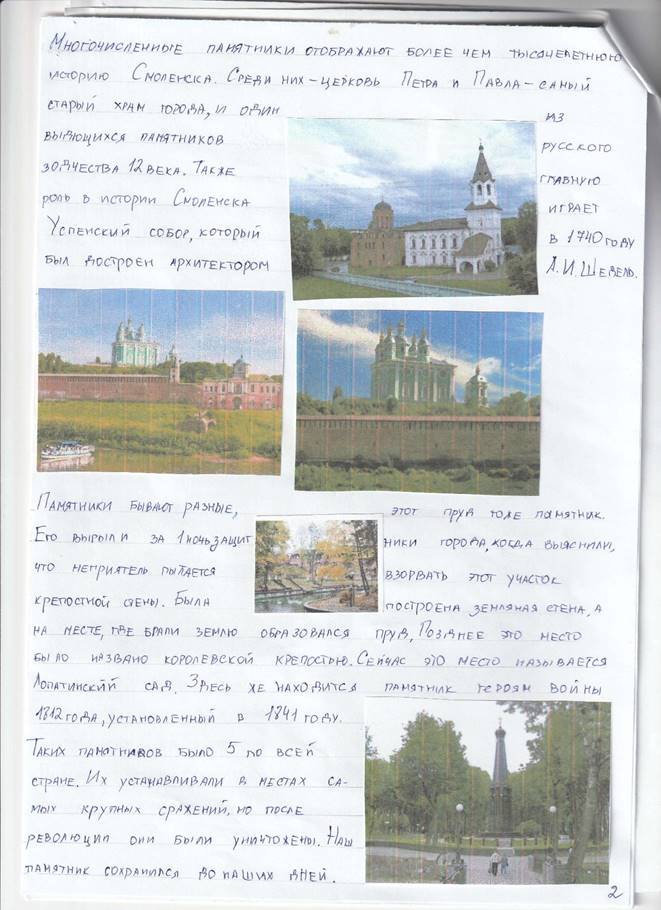 Многочисленные памятники отображают более чем тысячелетнюю
историю Смоленска. Среди них – церковь Петра и Павла – самый
старый храм города, и один из
выдющихся памятников русского
зодчества 12 века. Также главную
роль в истории Смоленска играет
Успенский собор, который в 1740 году
был достроен архитектором А.И.Шедель.
Памятники бывают разные, этот пруд тоже памятник.
Его вырыли за 1 ночь, защитники города, когда выяснили,
что неприятель пытается взорвать этот участок
крепостной стены. Была построена земляная стена, а
на месте, где брали землю образовался пруд. Позднее это место
было названо королевской крепостью. Сейчас это место называется
Лопатинский сад. Здесь же находится памятник героям войны
1812 года, установленный в 1841 году.
Таких памятников было 5 по всей
стране. Их устанавливали в местах са-
мых крупных сражений, но после
революции они были уничтожены. Наш
памятник сохранился до наших дней.
2